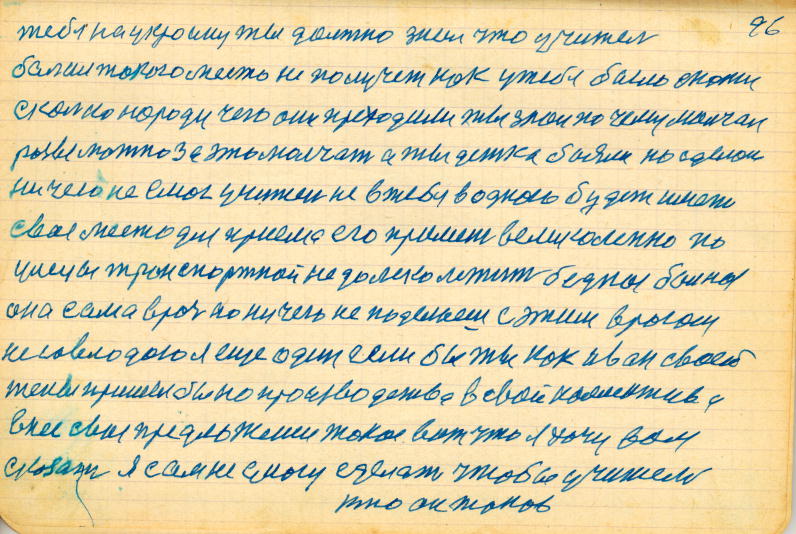 96
тебя научрому ты должно знал что учител
болш токого месть не получет как у тебя было скажи
сколко народу чего они преходили ты знал почему молчал
розве можно за это молчат а ты детка боялся но сделат
ничего не смог учител не в тебя водного будет имет
свое место для приема его примет великолепно по
улицы транспортной недолеко лежит бедная болная
она сама врач но ничего не поделаеш с этим врагом
несовелодою я еще один если бы ты как иван своей
жены пришел бы на производства в свой коллектив а
внес свои предложении такое вот что я хочу вам
сказат я сам не смогу сделат чтобы учител
кто он таков